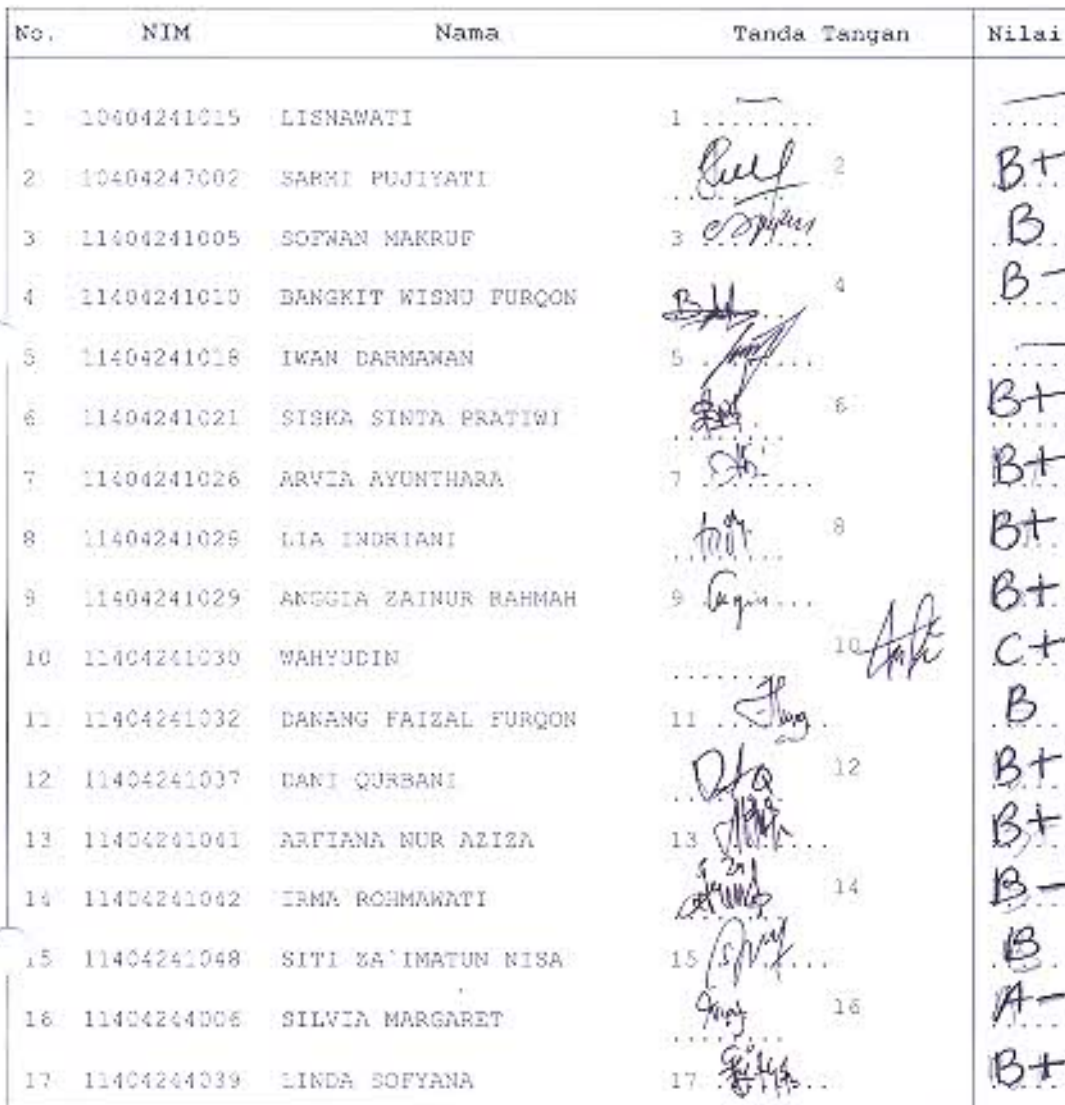 No. NIM Nama Tanda Tangan Nilai
1 10404241015 LISNAWATI 1 ......... —
2 10404247002 SARMI PUJIYATI 2 B+
3 11404241005 SOFWAN MAKRUF 3 B
4 11404241010 BANGKIT WISNU FURQON 4 B-
5 11404241018 IWAN DARMAWAN 5 —
6 11404241021 SISKA SINTA PRATIWI 6 B+
7 11404241026 ARVIA AYUNTHARA 7 B+
8 LIA INDRIANI 8 B+
9 11404241029 ANGGIA ZAINUR RAHMAH 9 B+
10 11404241030 WAHYUDIN 10 C+
11 11404241032 DANANG FAIZAL FURQON 11 B
12 11404241037 DANI QURBANI 12 B+
13 11404241041 ARFIANA NUR AZIZA 13 B+
14 11404241042 IRMA ROHMAWATI 14 B-
15 11404241048 SITI ZA`IMATUN NISA 15 B
16 11404244006 SILVIA MARGARET 16 A-
17 11404244039 LINDA SOFYANA 17 B+